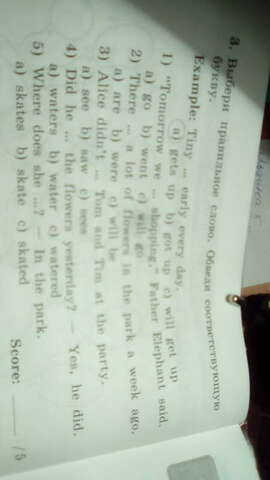 3. Выбери правильное слово. Обведи соответствующую
букву.
Example: Tiny ... early every day.
a) gets up b) got up c) will get up
1) «Tomorrow we ... shopping,” Father Elephant said.
a) go b) went c) will go
2) There ... a lot of flowers in the park a week ago.
a) are b) were c) will be
3) Alice didn't ... Tom and Tim at the party.
a) see b) saw c) sees
4) Did he ... the flowers yesterday? — Yes, he did.
a) waters b) water c) watered
5) Where does she ...? — In the park.
a) skates b) skate c) skated
Score: ____ /5